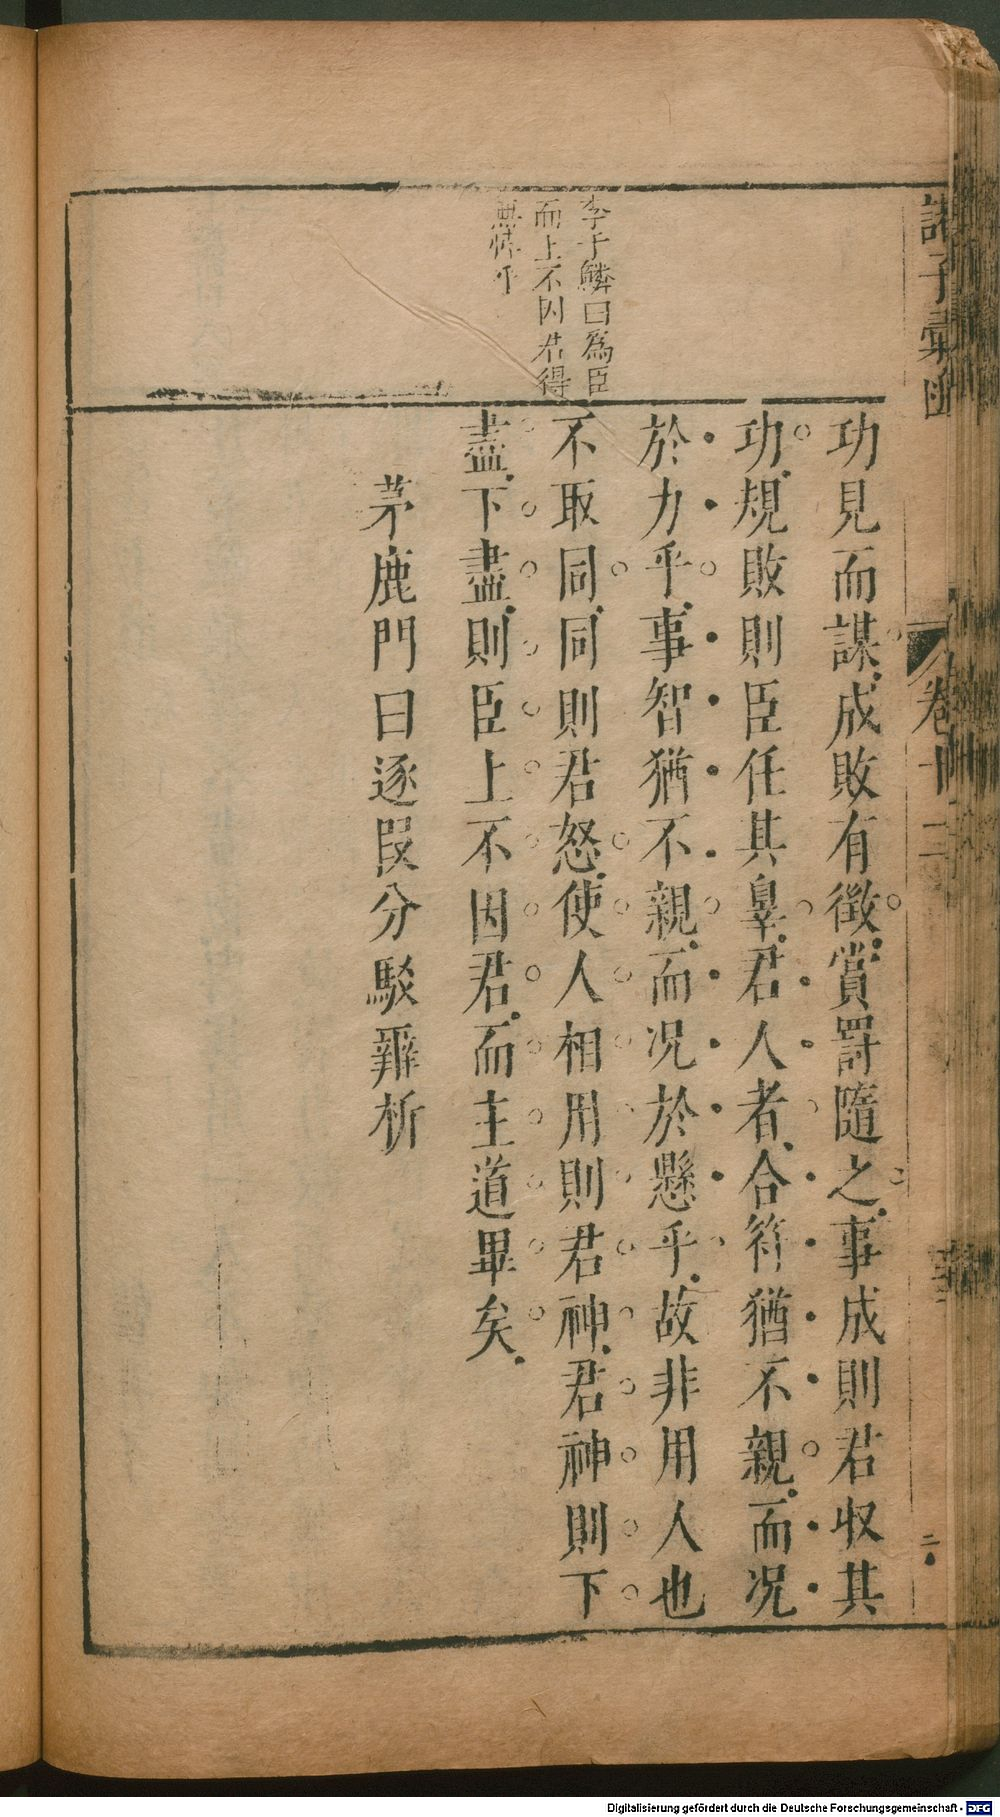 諸子彙函
卷十二
二
李于鱗曰為臣
而上不因君得
無悖乎
功見而謀成敗有徵賞罸隨之事成則君収其
功規敗則臣任其辠君人者合符猶不親而况
於力乎事智猶不親而况於懸乎故非用人也
不取同同則君怒使人相用則君神君神則下
盡下盡則臣上不因君而主道畢矣
茅鹿門曰逐段分駁辯析
Digitalisierung gefördert durch die Deutsche Forschungsgemeinschaft - DFG